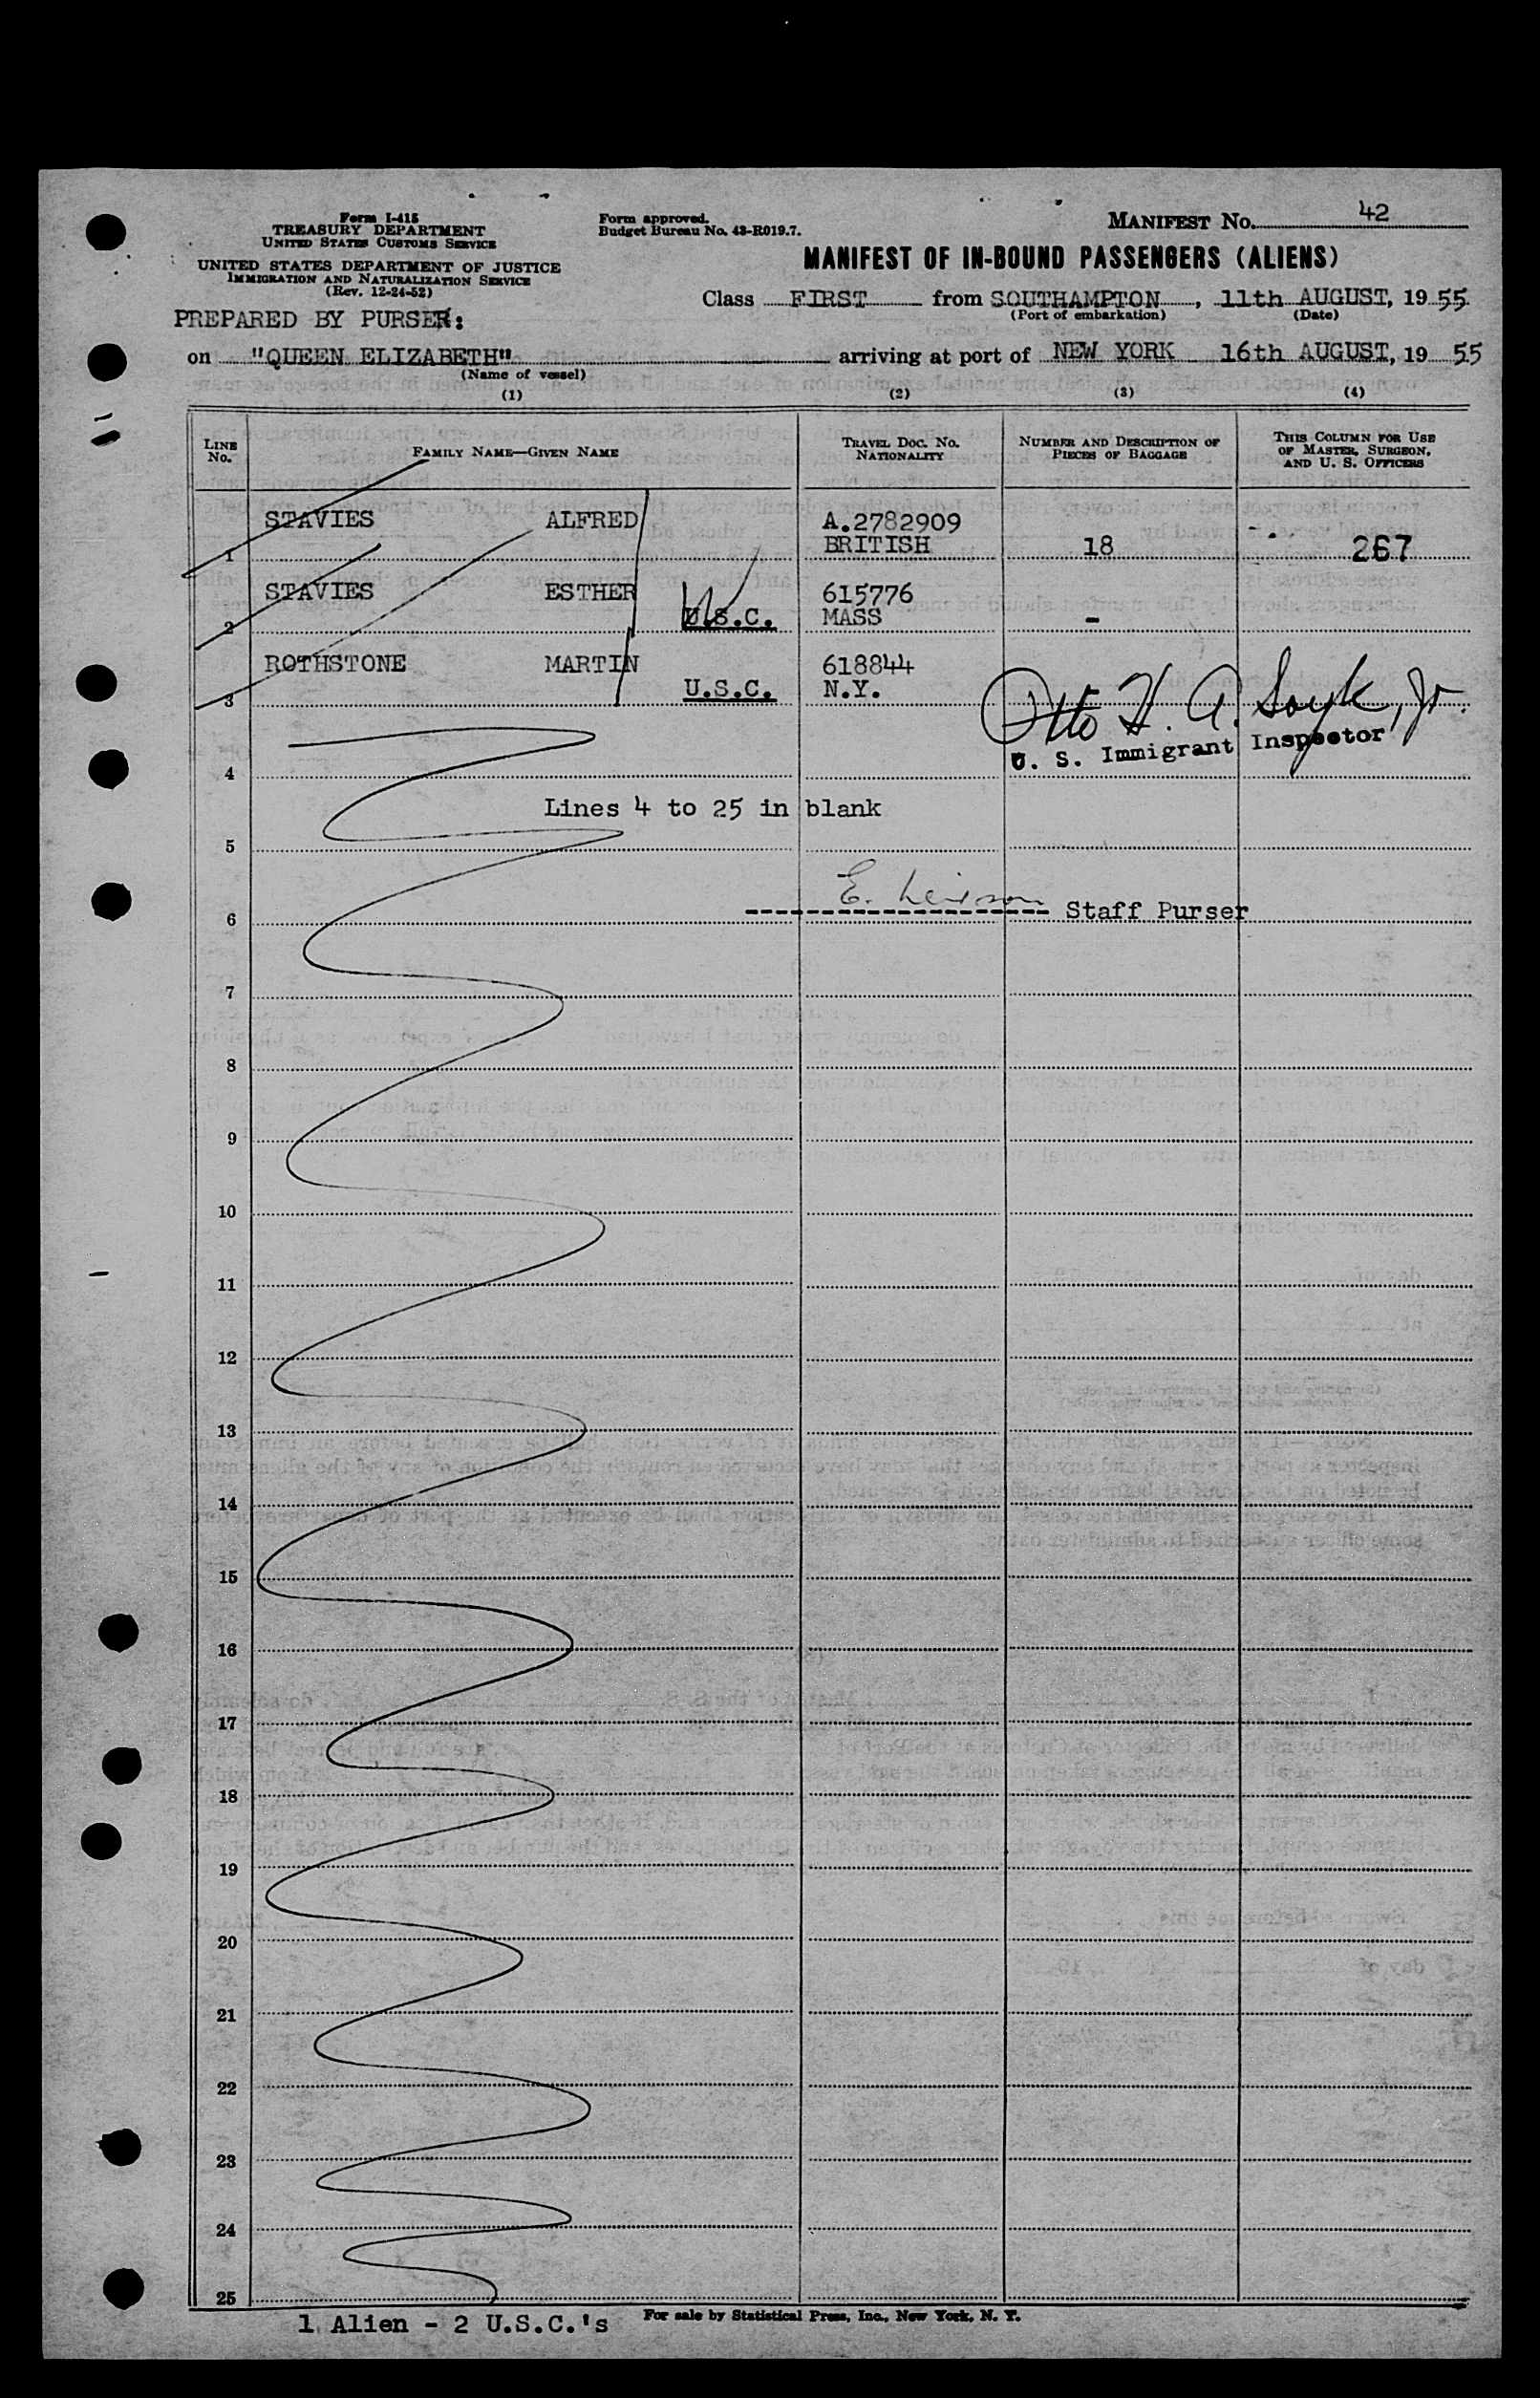 Form I-415
TREASURY DEPARTMENT
UNITED STATES CUSTOMS SERVICE
UNITED STATES DEPARTMENT OF JUSTICE
IMMIGRATION AND NATURALIZATION SERVICE
(Rev. 12-24-52)
PREPARED BY PURSER:
Form approved.
Budget Bureau No. 43-R019.7.
MANIFEST No. 42
MANIFEST OF IN-BOUND PASSENGERS (ALIENS)
Class FIRST from SOUTHAMPTON, 11th AUGUST, 1955
(Port of embarkation) (Date)
on "QUEEN ELIZABETH" arriving at port of NEW YORK 16th AUGUST, 1955
(Name of vessel)
(1) (2) (3) (4)
LINE No. FAMILY NAME—GIVEN NAME TRAVEL DOC. No. NATIONALITY NUMBER AND DESCRIPTION OF PIECES OF BAGGAGE THIS COLUMN FOR USE OF MASTER, SURGEON, AND U. S. OFFICERS
STAVIES ALFRED A.2782909
1 BRITISH 18 267
STAVIES ESTHER 615776
2 U.S.C. MASS -
ROTHSTONE MARTIN 618844
3 U.S.C. N.Y.
Otto H. A. Soyk, Jr.
U. S. Immigrant Inspector
4
Lines 4 to 25 in blank
5
E. Staff Purser
6
7
8
9
10
11
12
13
14
15
16
17
18
19
20
21
22
23
24
25
1 Alien - 2 U.S.C.'s For sale by Statistical Press, Inc., New York, N. Y.